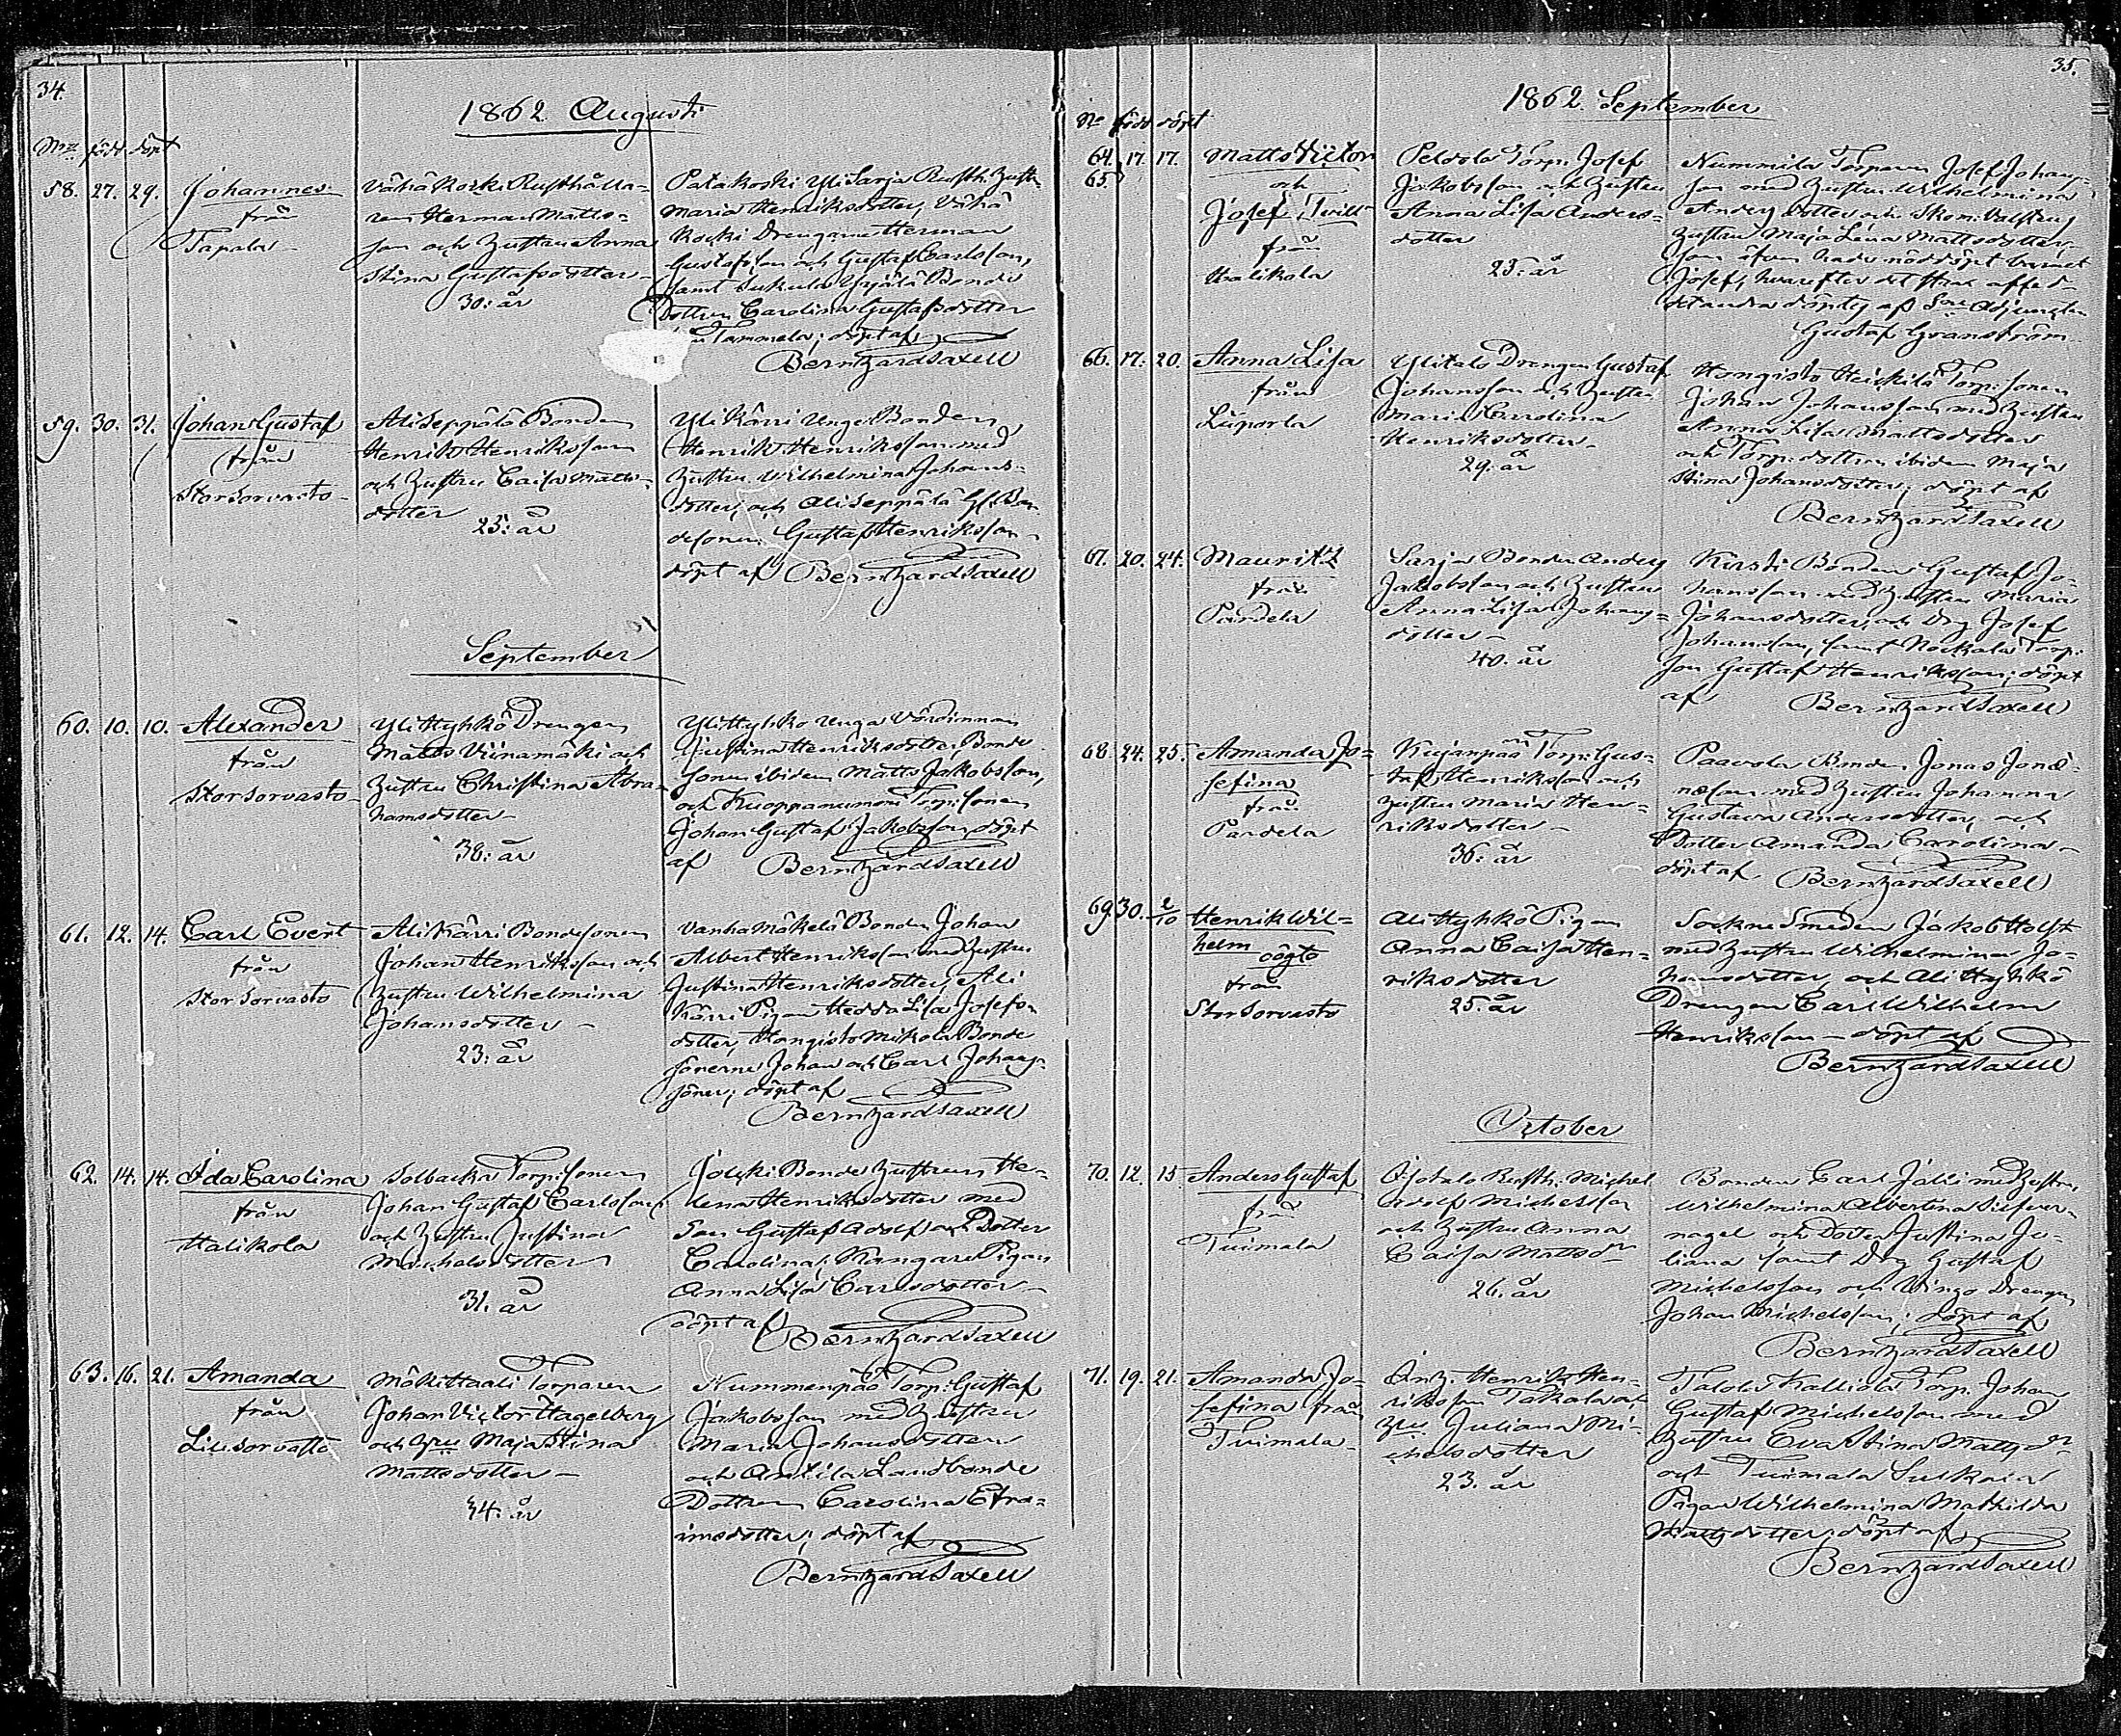 34.
1862 Augusti
Nris född döpt
58. 27. 29. Johannes
från
Tapala
Vähä Koski Rusthålla-
ren Herman Matts-
son och Hustru Anna
Stina Gustafsdotter
30: år
Patakoski Yli Sarja Rusth. Hustr.
Maria Henriksdotter, Vähä
Koski Drengarne Herman
Gustafsson och Gustaf Carlsson,
samt Yrjälä Bonde
Dottren Carolina Gustafsdotter
Tammela; döpt af
Bernhard Saxell
59. 30. 31. Johan Gustaf
från
Stor Sorvasto
Ali Seppälä Bonden
Henrik Henriksson
och Hustru Caisa Matts-
dotter
25: år
Yli Kärri Unge Bonden
Henrik Henriksson med
Hustru Wilhelmina Johans-
dotter, och Ali Seppälä Bon-
desonen Gustaf Henriksson
döpt af Bernhard Saxell
September
60. 10. 10. Alexander
från
Stor Sorvasto
Yli Hyhkö Drengen
Matts Viinamäki och
Hustru Christina Abra-
hamsdotter
38: år
Yli Hyhkö Unga Värdinnan
Justina Henriksdotter, Bonde
sonen ibidem Matts Jakobsson,
och Kuoppanummi Torp: sonen
Johan Gustaf Jakobsson, döpt
af Bernhard Saxell
61. 12. 14. Carl Evert
från
Stor Sorvasto
Ali Kärri Bondesonen
Johan Henriksson och
Hustru Wilhelmina
Johansdotter
23: år
Vanha Mäkelä Bonden Johan
Albert Henriksson med Hustru
Justina Henriksdotter, Ali
Kärri Pigan Hedda Lisa Josefs-
dotter, Hongisto Mikola Bonde
sönerne Johan och Carl Johans-
söner; döpt af
Bernhard Saxell
62. 14. 14. Ida Carolina
från
Halikola
Solbacka Torp: sonen
Johan Gustaf Carlsson
och Hustru Justina
Michelsdotter
31. år
Jooski Bonde Hustrun He-
lena Henriksdotter med
Son Gustaf Adolf och Dotter
Carolina; Kangare Pigan
Anna Lisa Carlsdotter
döpt af
Bernhard Saxell
63. 16. 21. Amanda
från
Lill Sorvasto
Mäkittaali Torparen
Johan Victor Hagelberg
och Hru Maja Stina
Mattsdotter
34: år
Nummenpää Torp: Gustaf
Jakobsson med Hustru
Maria Johansdotter
och Anttila Landbonde
Dottren Carolina Efra-
imsdotter; döpt af
Bernhard Saxell
35.
1862. September
No född döpt
64. 17. 17. Matts Victor
65. och
Josef, Tvill-
från
Halikola
Peldola Torp: Josef
Jakobsson och Hustru
Anna Lisa Anders-
dotter
23: år
Nummila Torparen Josef Johans-
son med Hustru Wilhelmina
Anders dotter och
Hustru Maja Lena Mattsdotter
som äfven hade nöddöpt barnet
Josef, hvarefter det strax
andra döptes af Soc: Adjuncten
Gustaf Granström
66. 17. 20. Anna Lisa
från
Liiporla
Ylitalo Drengen Gustaf
Johansson och Hustru
Maria Carolina
Henriksdotter
29: år
Hongisto Heickilä Torp: sonen
Johan Johansson med Hustru
Anna Lisa Mattsdotter
och Torp: dottren ibidem Maja
Stina Johansdotter; döpt af
Bernhard Saxell
67. 20. 24. Mauritz
från
Pärdela
Sarja Bonden Anders
Jakobsson och Hustru
Anna Lisa Johans-
dotter
40. år
Kirsti Bonden Gustaf Jo-
hansson med Hustru Maria
Johansdotter, och Drg Josef
Johansson, samt Nockala Torp:
son Gustaf Henriksson; döpt
af Bernhard Saxell
68. 24. 25. Amanda Jo-
sefina
från
Pardela
Kujanpää Torp: Gus-
taf Henriksson och
Hustru Maria Hen-
riksdotter
36. år
Paavola Bonden Jonas Jona-
næson med Hustru Johanna
Gustava Andersdotter, och
Dotter Amanda Carolina
döpt af Bernhard Saxell
69. 30. 2/10 Henrik Wil-
helm
oägta
från
Stor Sorvasto
Ali Hyhkö Pigan
Anna Caisa Hen-
riksdotter
25. år
Sockne Smeden Jakob Holst
med Hustru Wilhelmina Jo-
hansdotter, och Ali Hyhkö
Drengen Carl Wilhelm
Henriksson döpt af
Bernhard Saxell
October
70. 12. 15 Anders Gustaf
från
Tuimala
Ojotalo Rusth: Michel
Adolf Michelsson
och Hustru Anna
Caisa Mattsdr
26. år
Bonden Carl Jalli med Hustru
Wilhelmina Albertina Silfver-
nagel och Dotter Justina Ju-
liana samt Drg Gustaf
Michelsson och Vingo Drengen
Johan Michelsson; döpt af
Bernhard Saxell
71. 19. 21. Amanda Jo-
sefina från
Tuimala
Inh. Henrik Hen-
riksson Takala och
Hru Juliana Mi-
chelsdotter
23. år
Talola Kalliola Torp. Johan
Gustaf Michelsson med
Hustru Eva Stina Mattsdr
och Tuimala Suikala
Pigan Wilhelmina Mathilda
Mattsdotter; döpt af
Bernhard Saxell